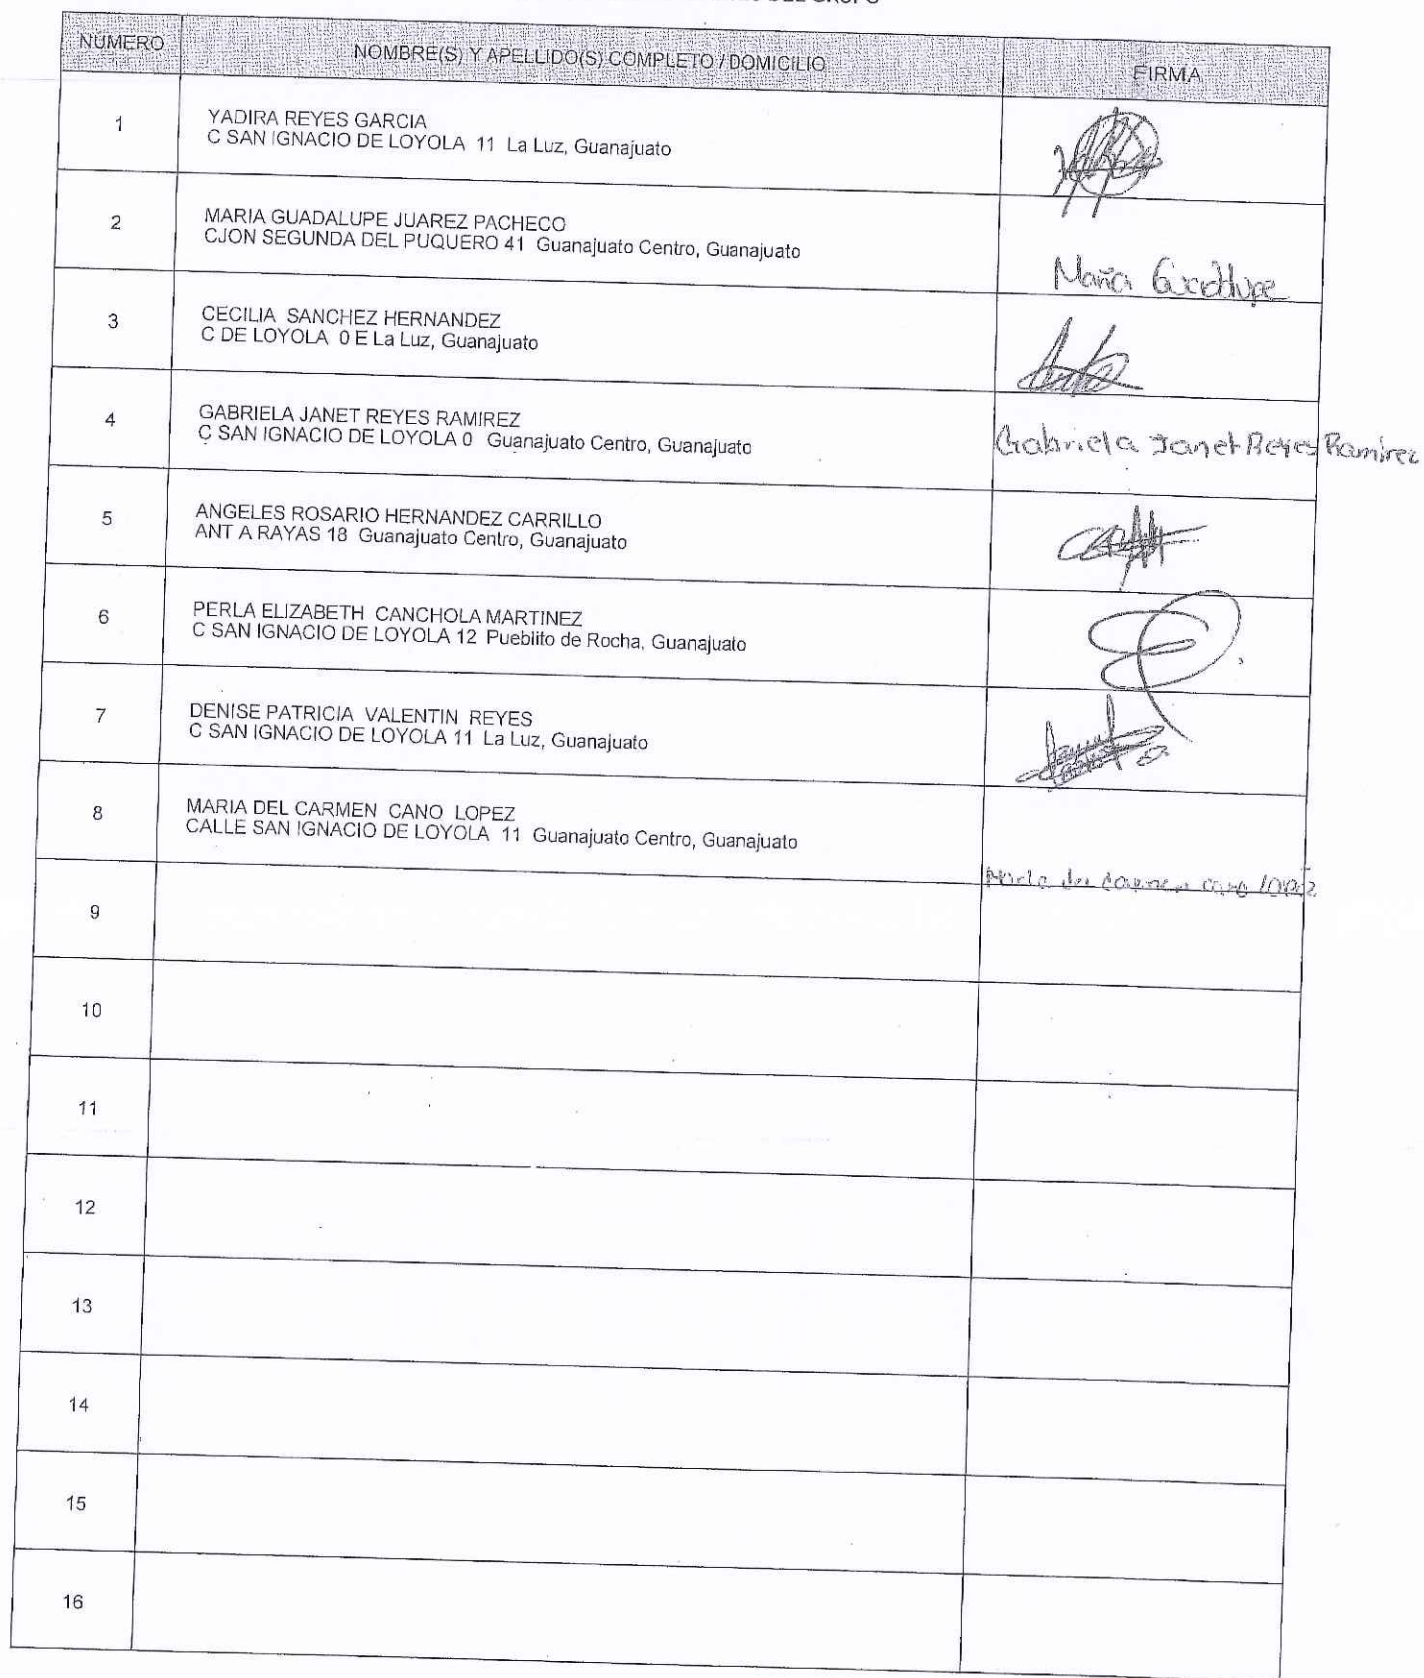 DEL GRUPO
NUMERO NOMBRE(S) Y APELLIDO(S) COMPLETO / DOMICILIO FIRMA
1 YADIRA REYES GARCIA
C SAN IGNACIO DE LOYOLA 11 La Luz, Guanajuato
2 MARIA GUADALUPE JUAREZ PACHECO
CJON SEGUNDA DEL PUQUERO 41 Guanajuato Centro, Guanajuato
Maria Guadalupe
3 CECILIA SANCHEZ HERNANDEZ
C DE LOYOLA 0 E La Luz, Guanajuato
4 GABRIELA JANET REYES RAMIREZ
C SAN IGNACIO DE LOYOLA 0 Guanajuato Centro, Guanajuato
Gabriela Janet Reyes Ramirez
5 ANGELES ROSARIO HERNANDEZ CARRILLO
ANT A RAYAS 18 Guanajuato Centro, Guanajuato
6 PERLA ELIZABETH CANCHOLA MARTINEZ
C SAN IGNACIO DE LOYOLA 12 Pueblito de Rocha, Guanajuato
7 DENISE PATRICIA VALENTIN REYES
C SAN IGNACIO DE LOYOLA 11 La Luz, Guanajuato
8 MARIA DEL CARMEN CANO LOPEZ
CALLE SAN IGNACIO DE LOYOLA 11 Guanajuato Centro, Guanajuato
Maria del carmen cano lopez
9
10
11
12
13
14
15
16